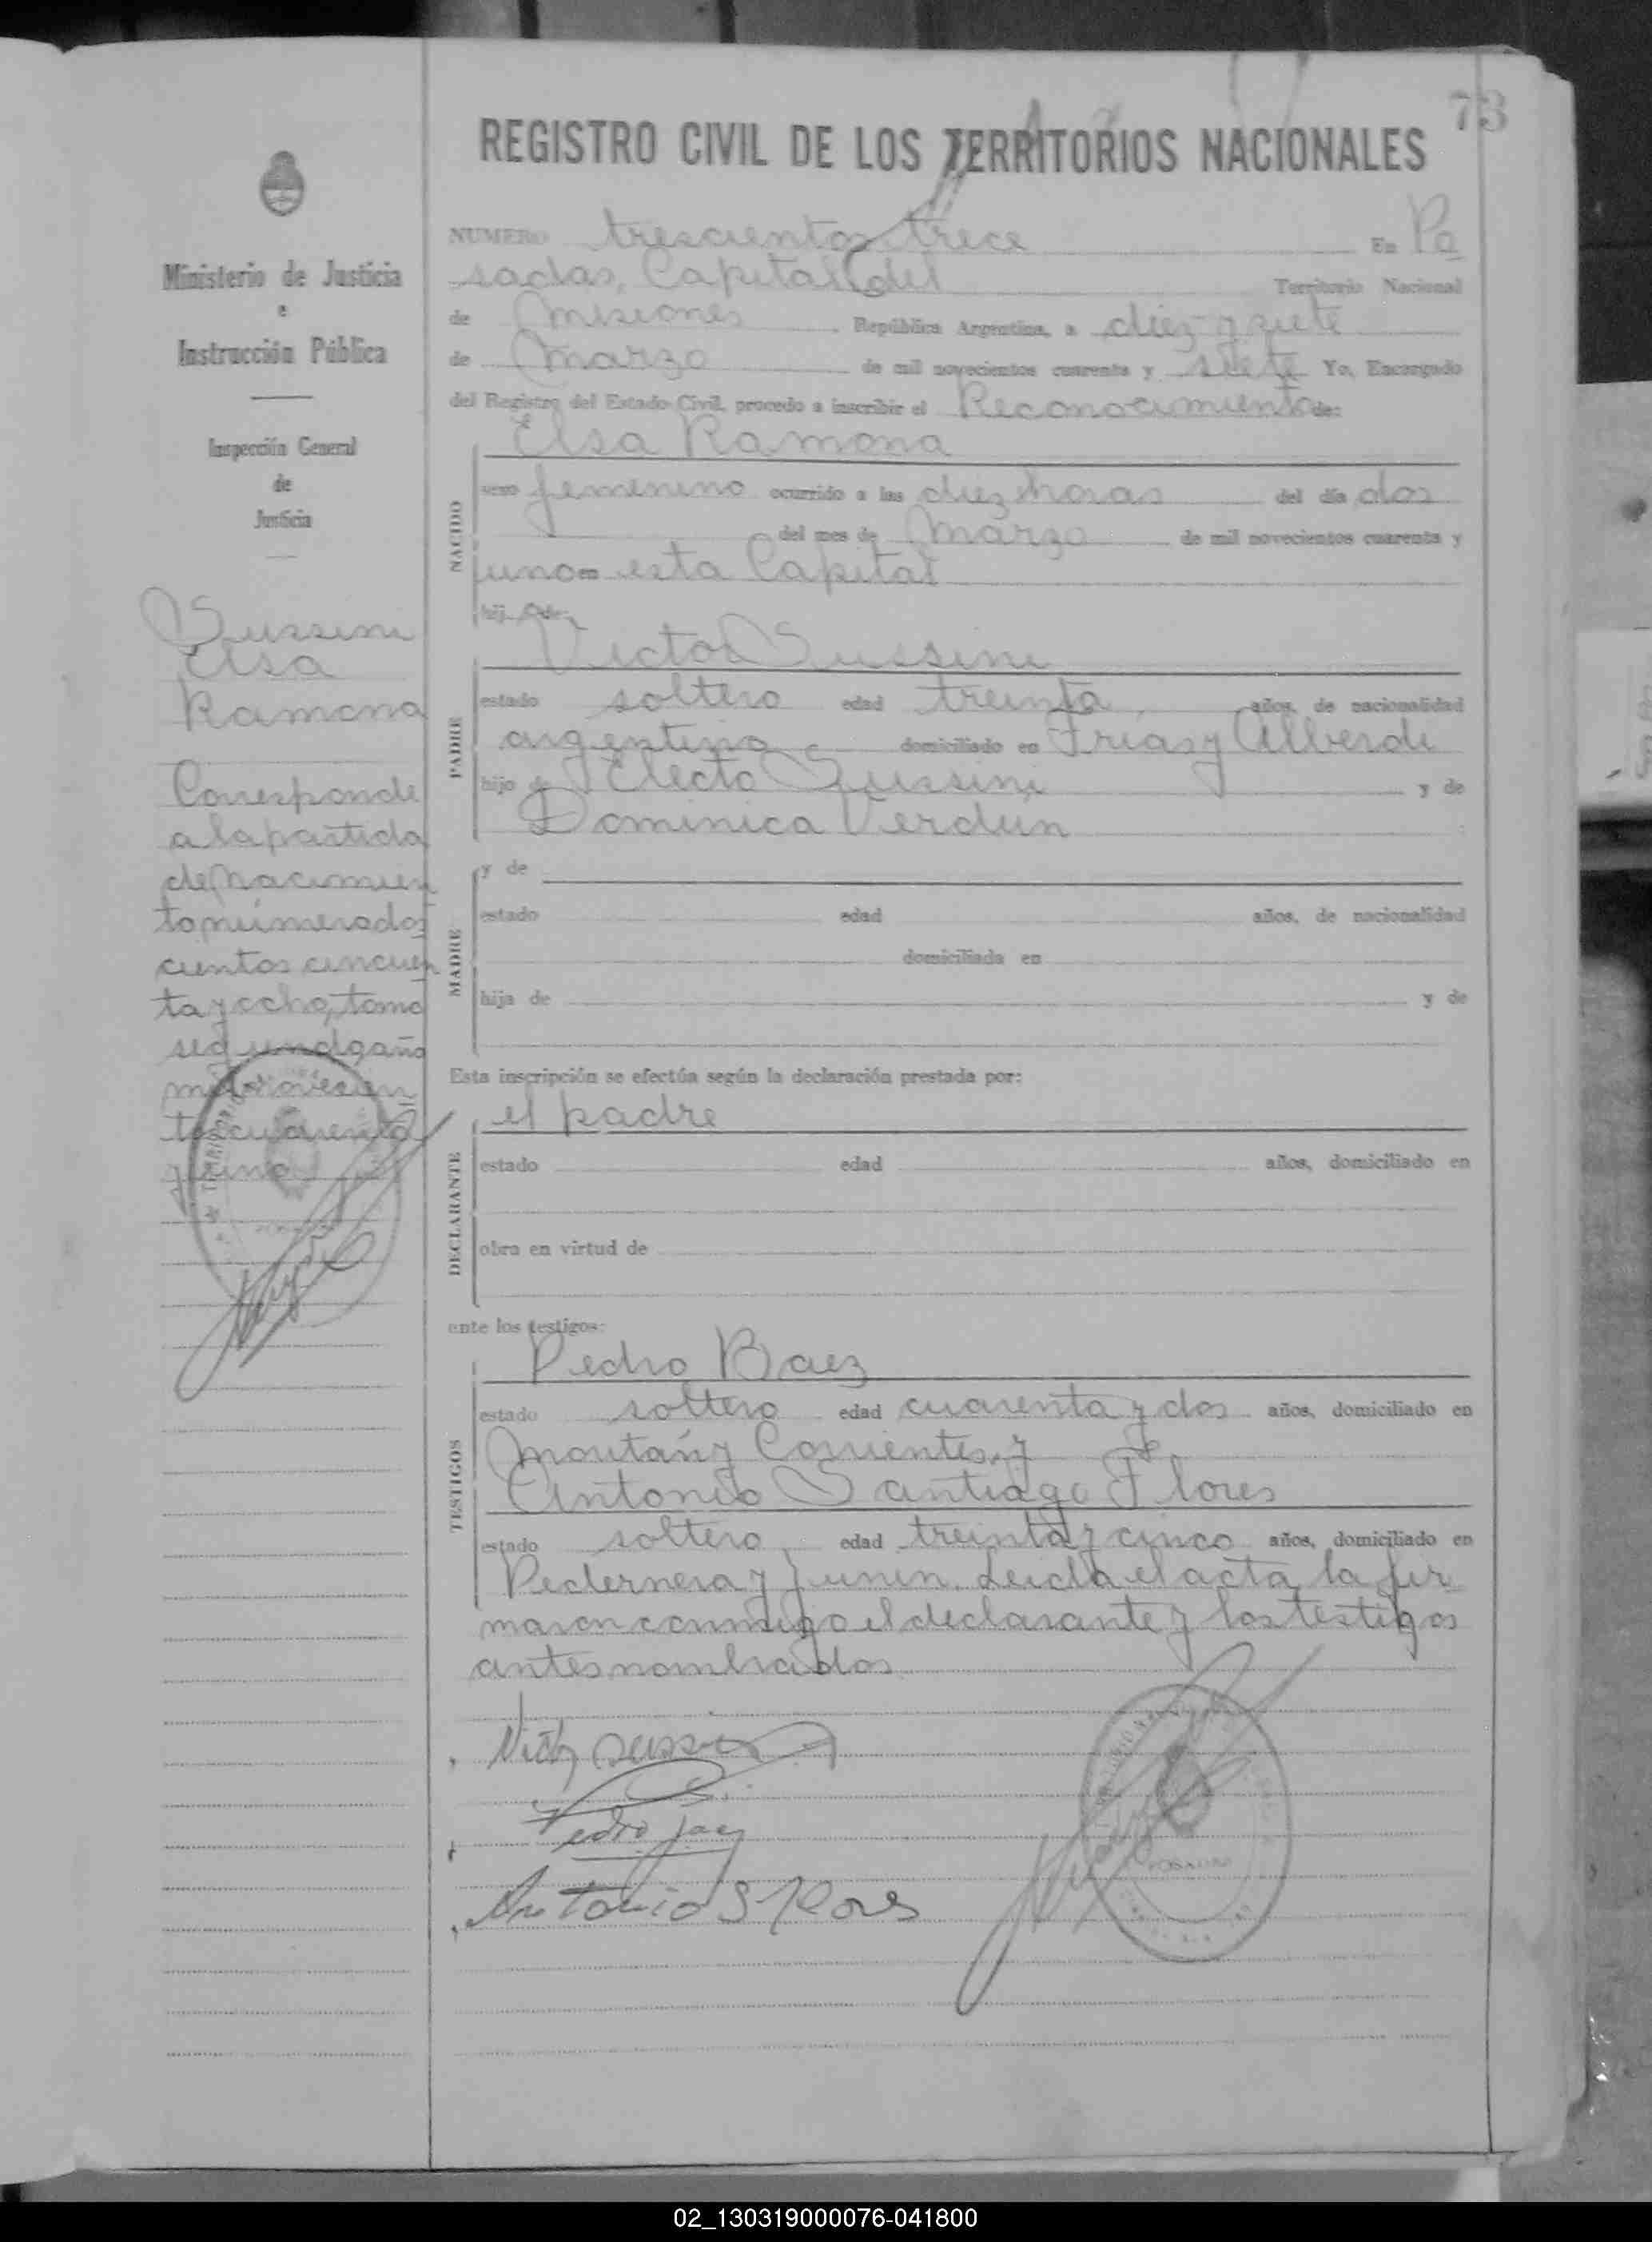 73
REGISTRO CIVIL DE LOS TERRITORIOS NACIONALES
Ministerio de Justicia
e
Instrucción Pública
Inspección General
de
Justicia
Sussini
Elsa
Ramona
Corresponde
a la partida
de nacimien
to número dos
cientos cincuen
ta y ocho, tomo
segundo, año
mil novecien
tos cuarenta
y uno
NUMERO trescientos trece En Po
sadas, Capital del Territorio Nacional
de Misiones República Argentina, a diez y siete
de Marzo de mil novecientos cuarenta y siete Yo, Encargado
del Registro del Estado Civil, procedo a inscribir el Reconocimiento de:
Elsa Ramona
NACIDO
sexo femenino ocurrido a las diez horas del día dos
del mes de Marzo de mil novecientos cuarenta y
uno en esta Capital
hija de:
Victor Sussini
PADRE
estado soltero edad treinta años, de nacionalidad
argentino domiciliado en Frias y Alberdi
hijo de Electo Sussini y de
Dominica Verdun
MADRE
y de
estado edad años, de nacionalidad
domiciliada en
hija de y de
Esta inscripción se efectúa según la declaración prestada por:
el padre
DECLARANTE
estado edad años, domiciliado en
obra en virtud de
ante los testigos:
Pedro Baez
TESTIGOS
estado soltero edad cuarenta y dos años, domiciliado en
Montañ y Corrientes, y
Antonio Santiago Flores
estado soltero edad treinta y cinco años, domiciliado en
Pedernera y Junin. Leida el acta, la fir
maron conmigo el declarante y los testigos
antes nombrados
Victor Sussini
Pedro Baez
Antonio S Flores
POSADAS
02_130319000076-041800